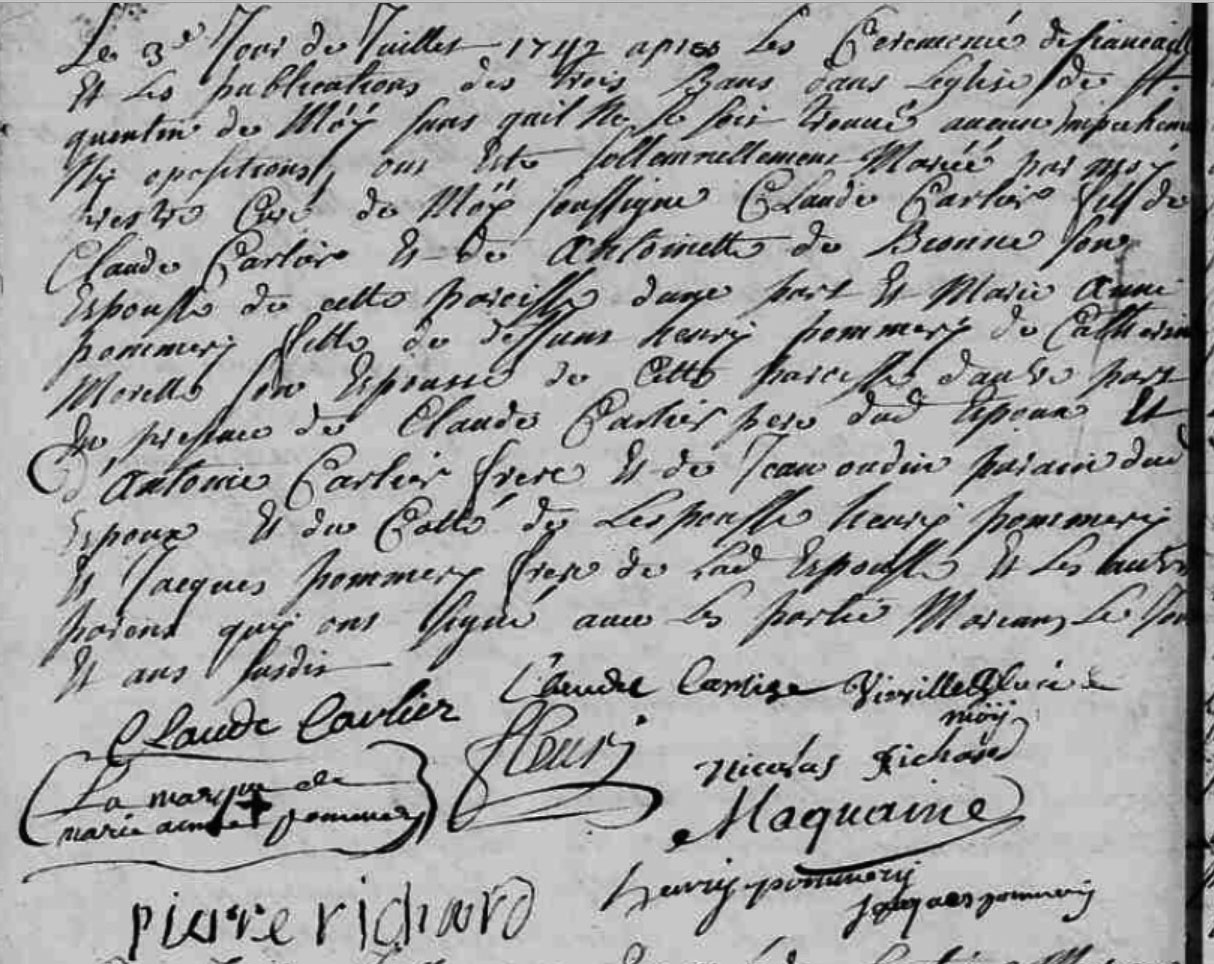 Le 3e Jour de Juillet 1742 apres Les Ceremonié de fiancaill
Et Les publications des trois Bans dans Leglise de St.
quentin de Möÿ sans quil Ne se soit trouué aucun Empechem
Ny opositions, ont Esté sollemnellement Mariéé par moÿ
prestre Curé de Möÿ soussigne Claude Carlier fils de
Claude Carlier Et de Antoinette de Bionne son
Espousse de cette paroisse dune part Et Marie Anne
pommery fille de deffunt henry pommery de Catherin
Morelle son Espousse de Cette paroisse dautre part
En presence de Claude Carlier pere dud Epoux Et
d'Antoine Carlier frere Et de Jean oudin parain dud
Espoux Et du Cotté de Lespousse henry pommery
Et Jacques pommery frere de Lad Espousse Et Les autre
parens quy ont signé auec Les partie Le Jour
Et ans susdit
Claude Carlier
Claude Carlier
Curé de
möÿ
fleury
Nicolas Richard
La marque de
marie anne pommery
Maquaine
henry pommery
Jacques pommery
pierre richard